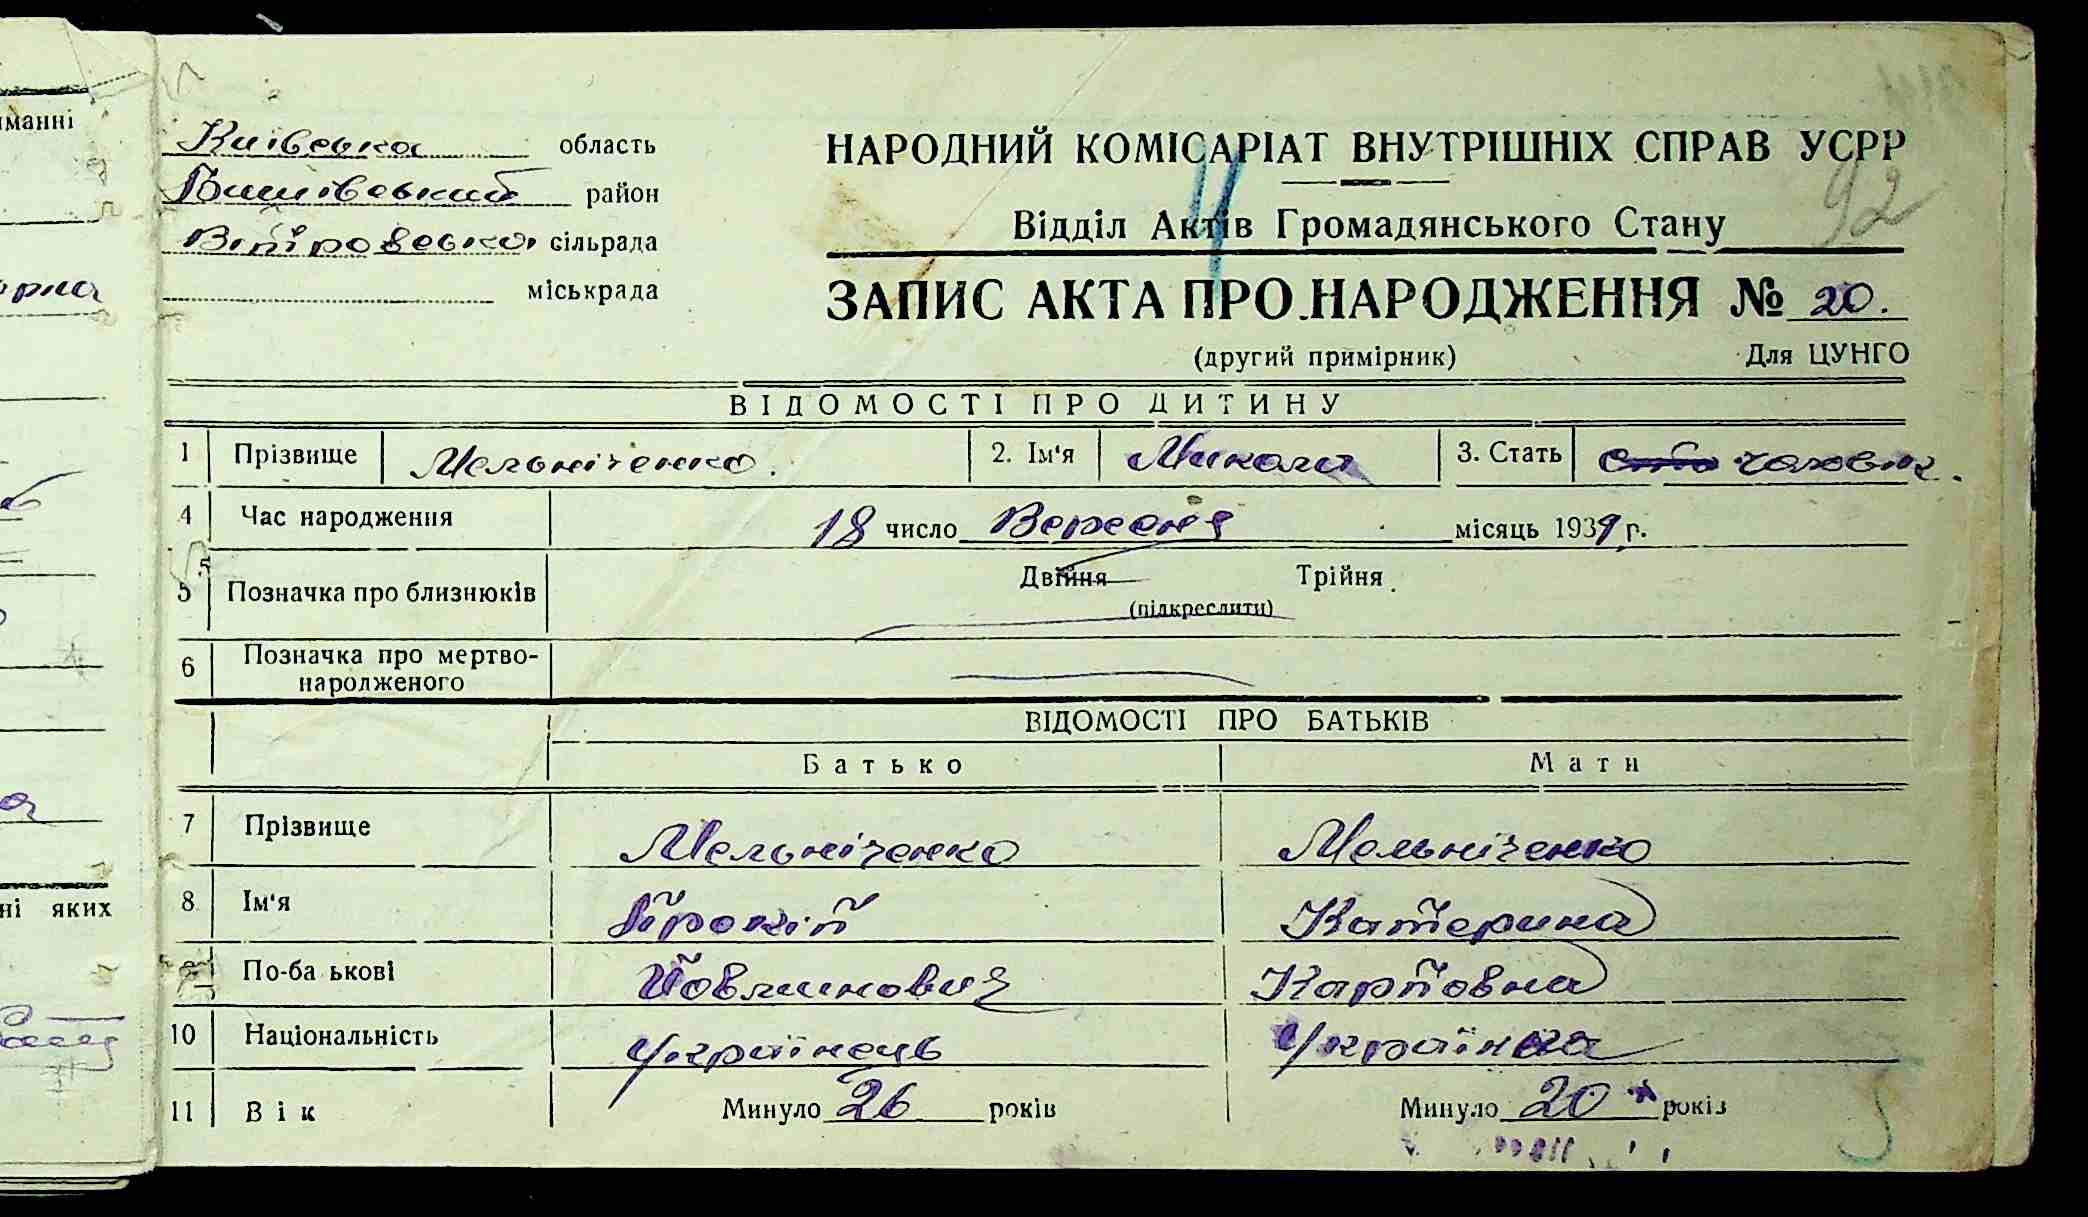 манні
Київська область
Бишівський район
Вітровська сільрада
міськрада
НАРОДНИЙ КОМІСАРІАТ ВНУТРІШНІХ СПРАВ УСРР
92
Відділ Актів Громадянського Стану
ЗАПИС АКТА ПРО НАРОДЖЕННЯ № 20.
(другий примірник) Для ЦУНГО
ВІДОМОСТІ ПРО ДИТИНУ
1 Прізвище Мельніченко. 2. Ім'я Микола 3. Стать чоловіч.
4 Час народження 18 число Вересня місяць 1939 г.
5 Позначка про близнюків Двійня Трійня
(підкреслити)
6 Позначка про мертво-
народженого
ВІДОМОСТІ ПРО БАТЬКІВ
Батько Мати
7 Прізвище Мельніченко Мельніченко
8 Ім'я Прокіп Катерина
ні яких
9 По-ба ькові Карповна
10 Національність Українець Українка
11 Вік Минуло 26 років Минуло 20 років